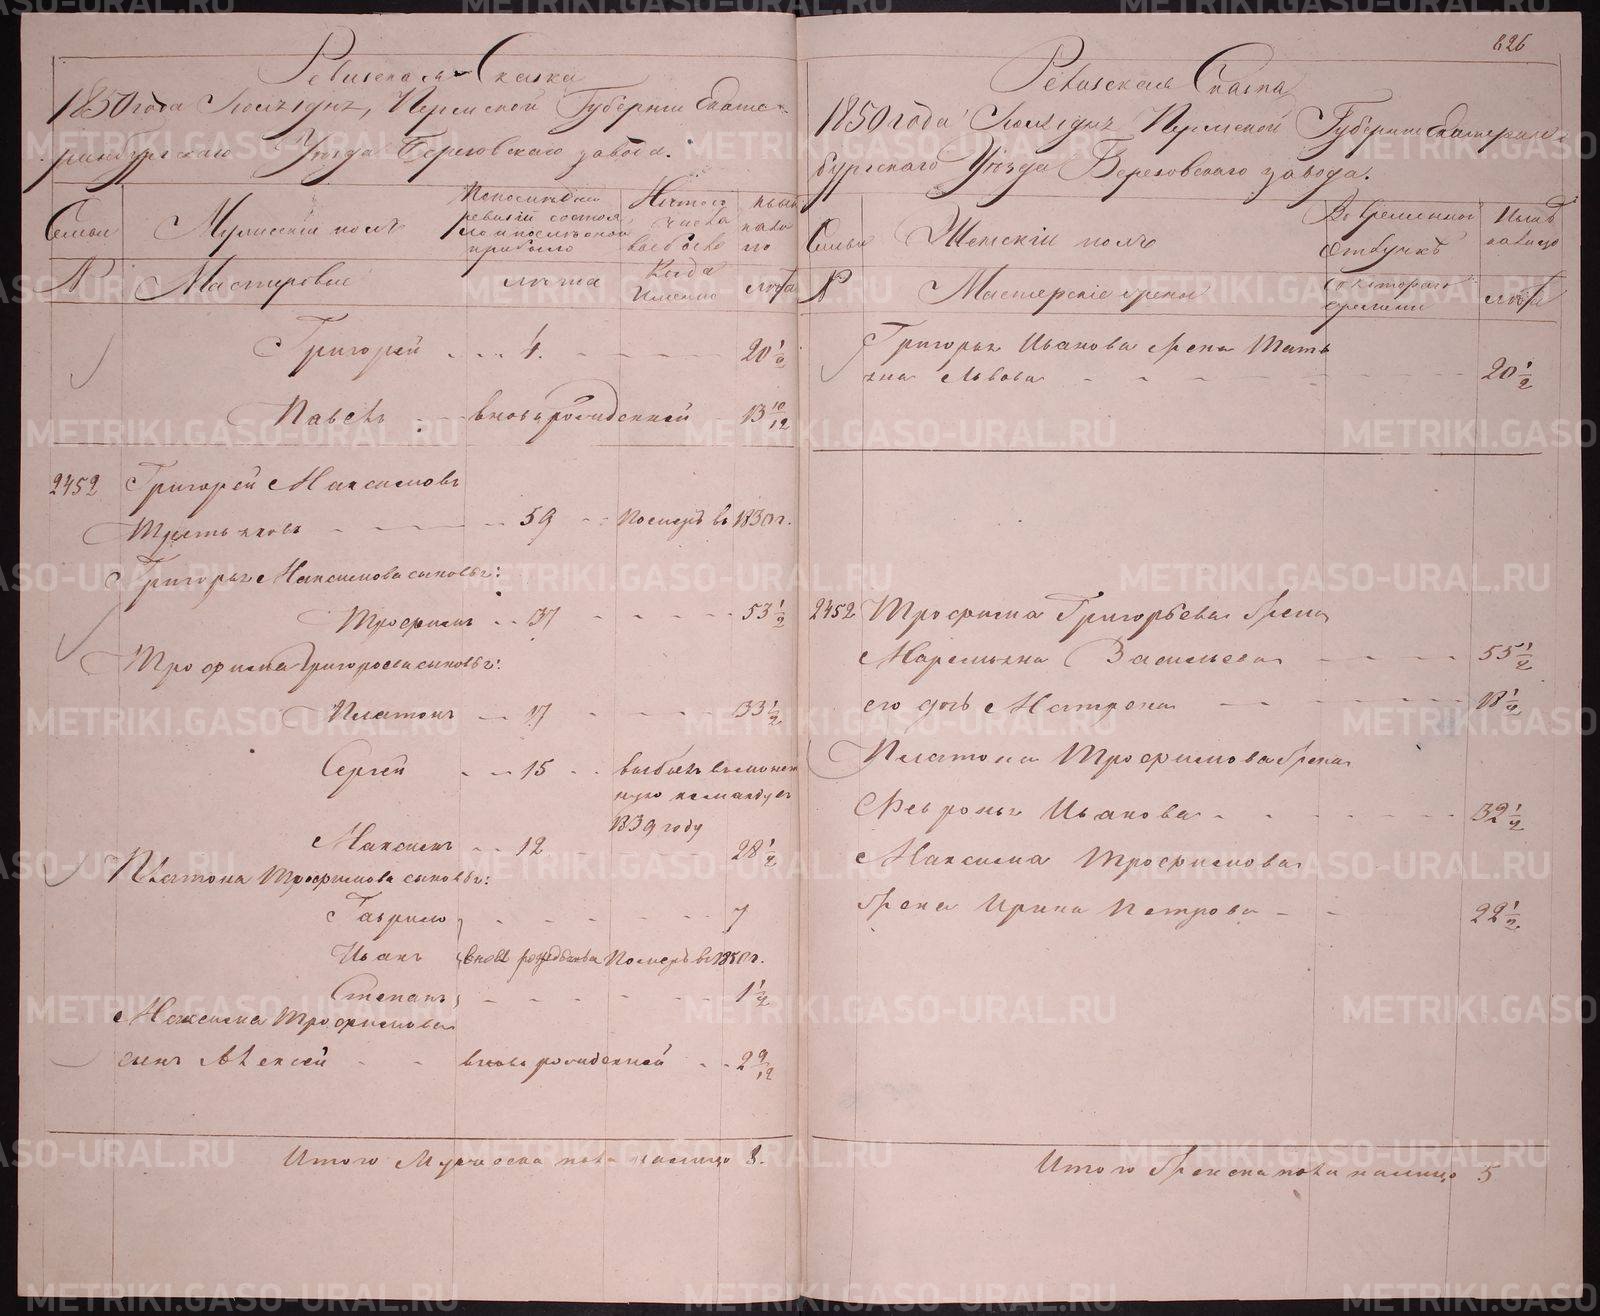 Ревизская Сказка
1850 года Пермской Губернии Екате-
ринбургскаго Уезда Березовскаго завода.
Семьи
Мужескій полъ
По последней
ревизіи состоя
ло и после оной
прибыло
Изъ того
числа
выбыло
Ныне
на ли
цо
№
Мастеровые
лета
Когда
Именно
лета
Григорей 4. 20 1/2
Павелъ вновь рожденной 13 10/12
2452 Григорей Максимовъ
59 Померъ въ 1830 г.
Григорья Максимова сыновья:
Трофимъ 37 53 1/2
Трофима Григорьева сыновья:
Платонъ 17 33 1/2
Сергей 15 выбылъ
команду въ
1839 году
Максимъ 12 28 1/2
Платона Трофимова сыновья:
Гаврило 7
Иванъ вновь рожденные Померъ въ 1850 г.
Степанъ 1 1/2
Максима Трофимова
сынъ Алексей вновь рожденной 2 9/12
Итого Мужеска пола налицо 8.
626
Ревизская Сказка
1850 года Пермской Губерніи Екатерин-
бургскаго Уезда Березовскаго завода.
Семьи
Женскій полъ
Во временной
отлучке
Ныне
налицо
№
Мастерскіе жены
Съ котораго
времени
лета
Григорья Иванова жена Тать
яна Львова 20 1/2
2452 Трофима Григорьева жена
Маремьяна Васильева 55 1/2
его дочь Матрена 18 1/2
Платона Трофимова жена
Февронья Иванова 32 1/2
Максима Трофимова
жена Ирина Петрова 22 1/2
Итого Женска пола налицо 5
METRIKI.GASO-URAL.RU